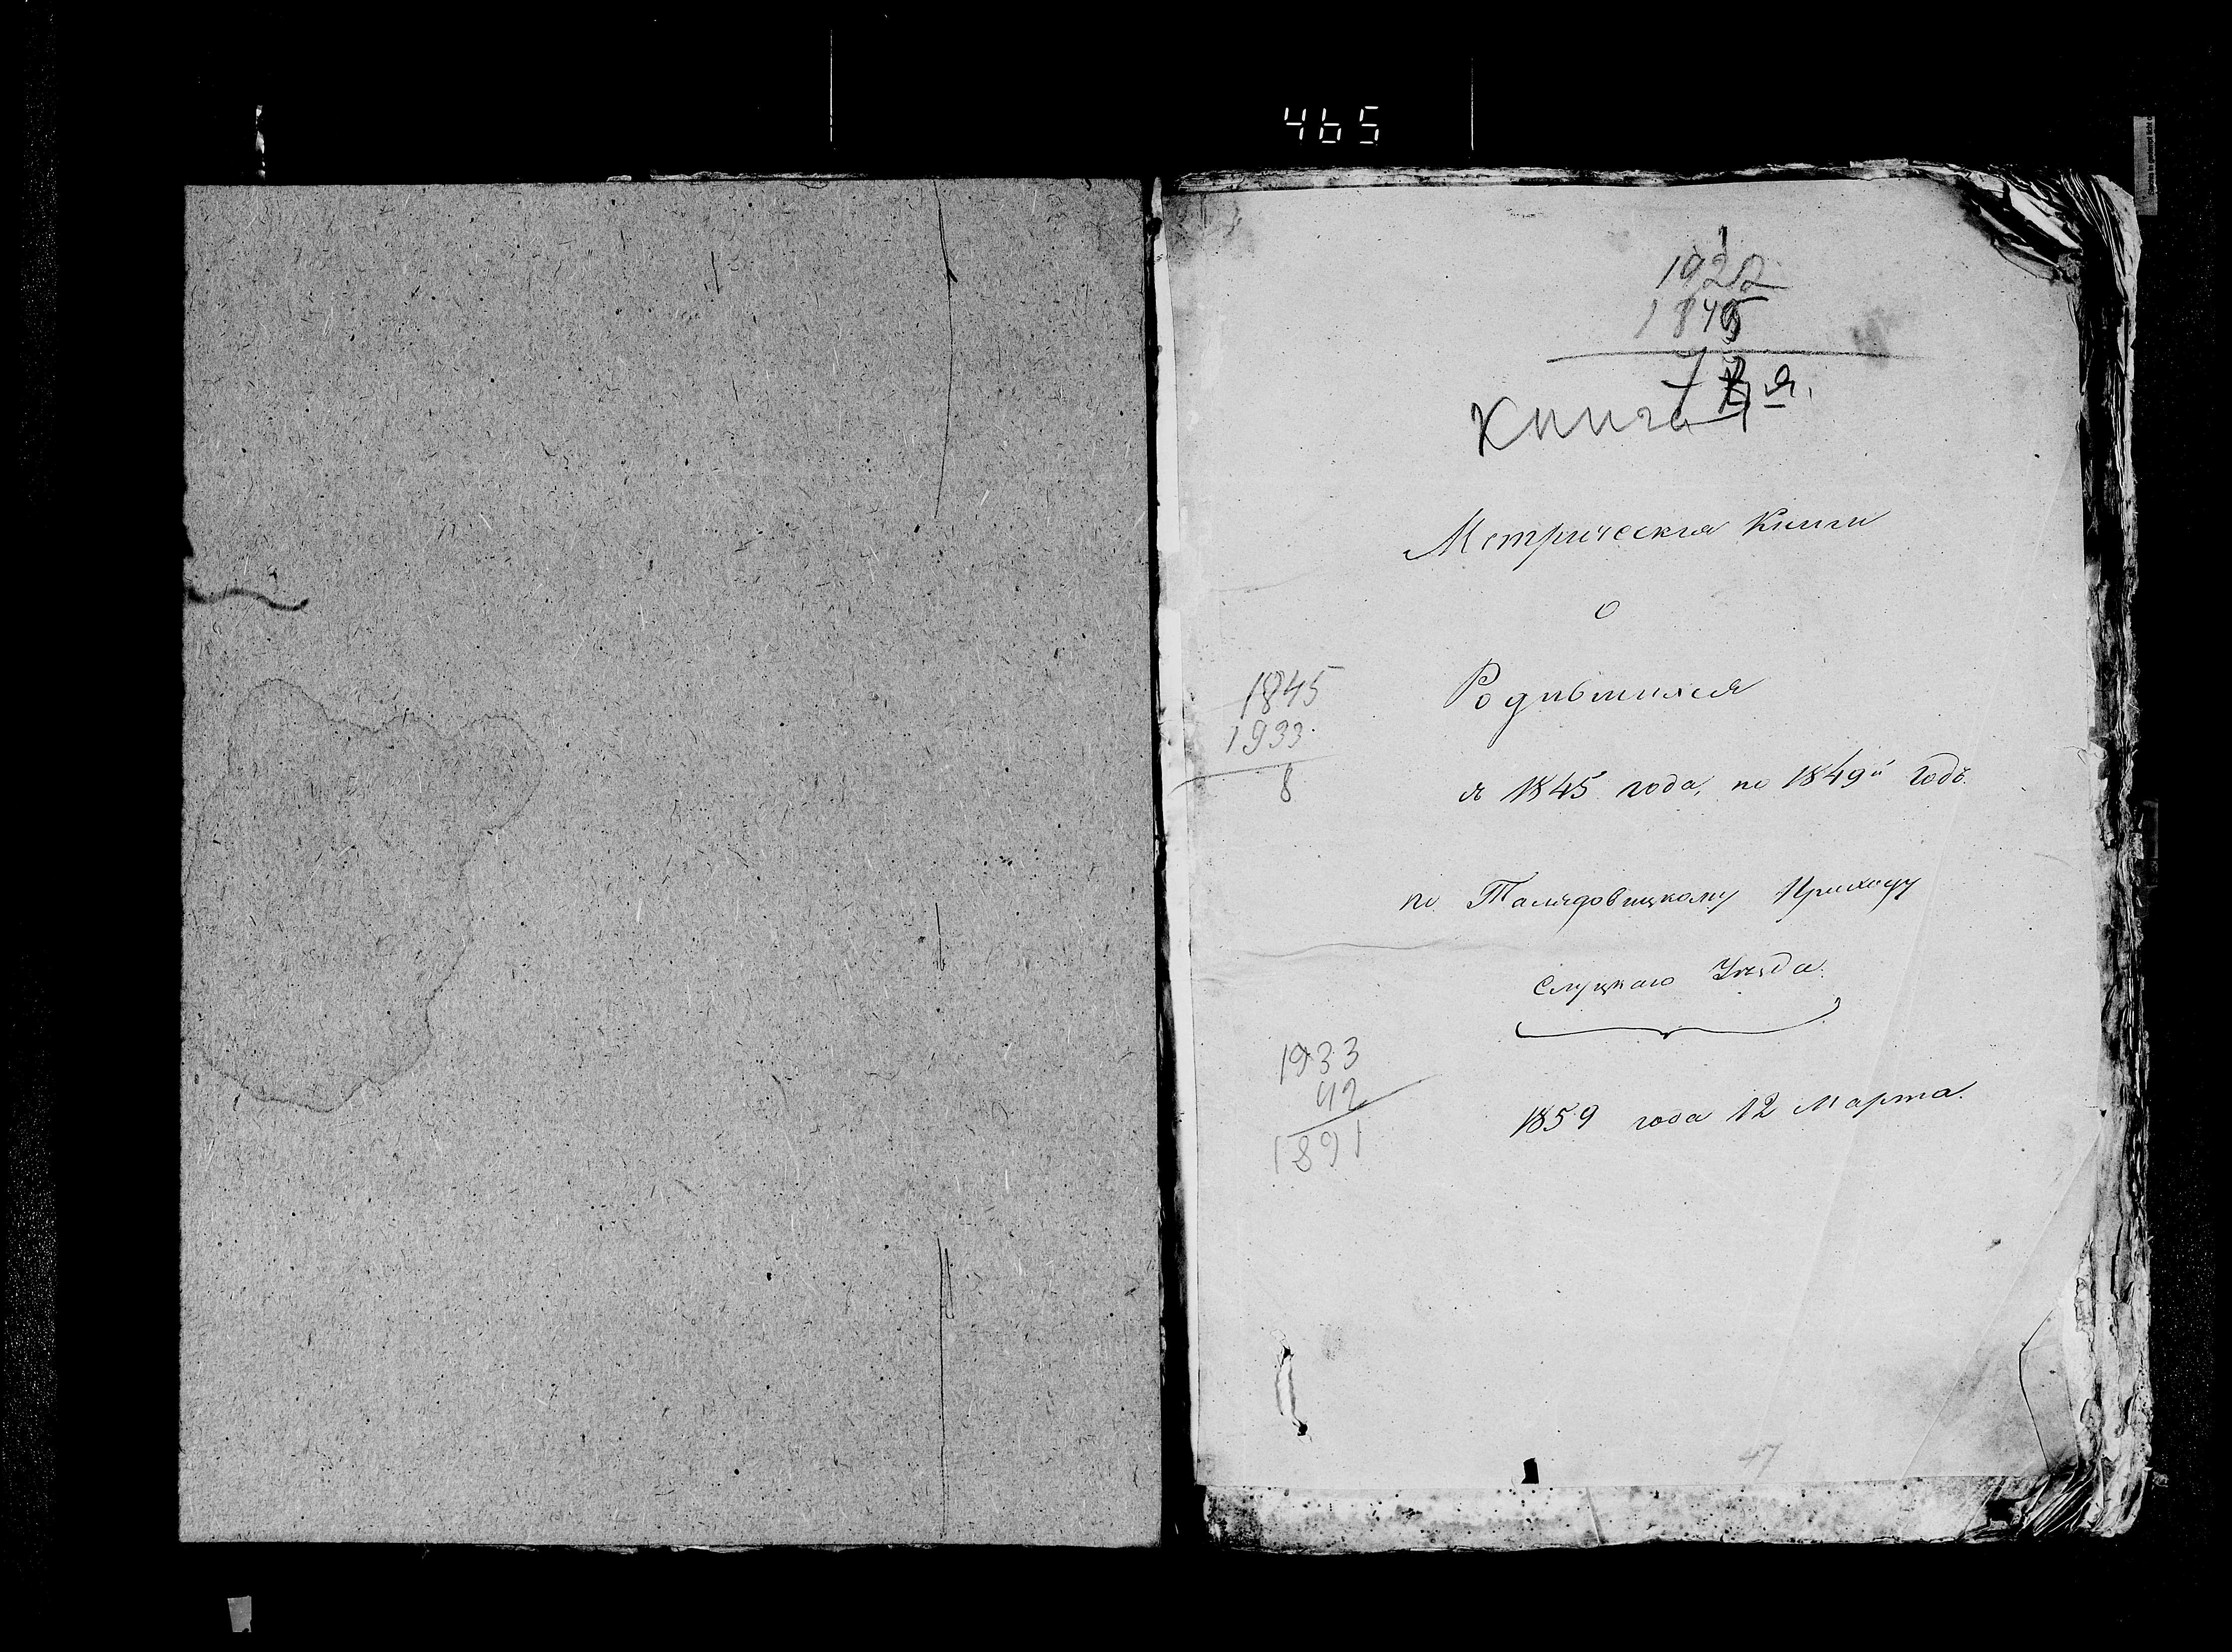 465
1922
1845
Книга
Метрическія Книги
о
Родившихся
1845
1933
8
съ 1845 года, по 1849й Годъ.
по Талядовицкому Приходу
Слуцкаго Уѣзда.
1933
42
1891
1859 года 12 Марта.